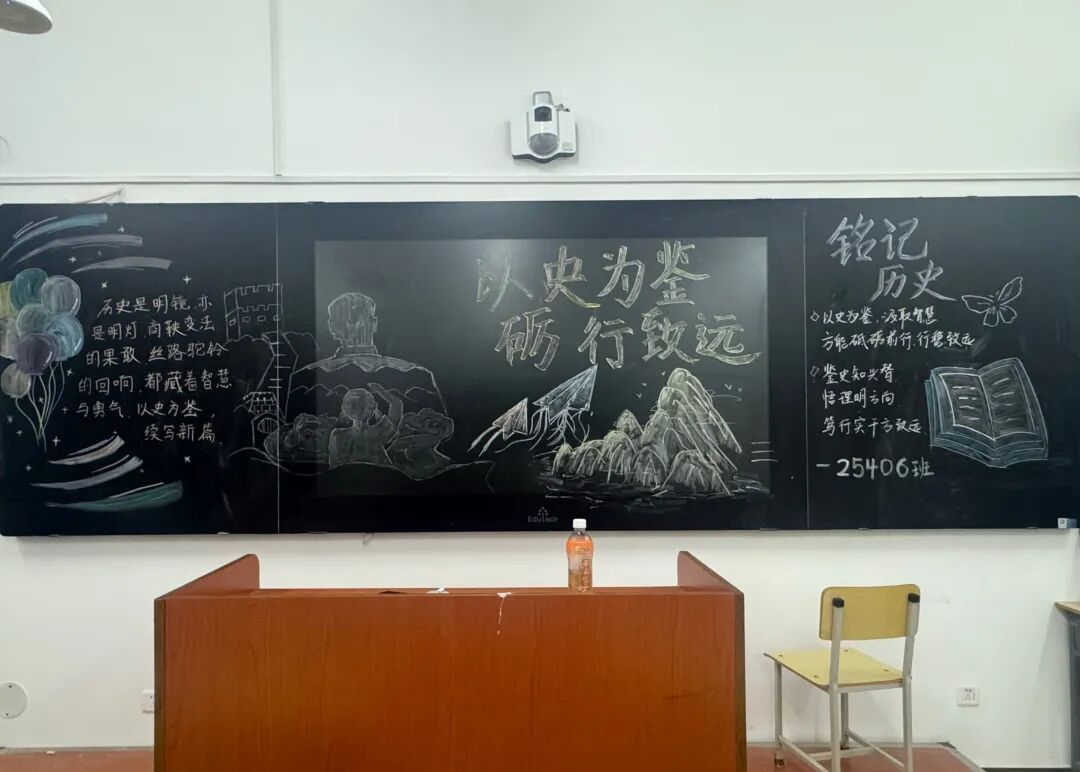 历史是明镜,亦
是明灯,商鞅变法
的果敢,丝路驼铃
的回响,都藏着智慧
与勇气,以史为鉴,
续写新篇
以史为鉴
砺行致远
Edutech
铭记
历史
以史为鉴,汲取智慧
方能砥砺前行,行稳致远
鉴史知兴替
悟理明方向
笃行实干方致远
-25406班